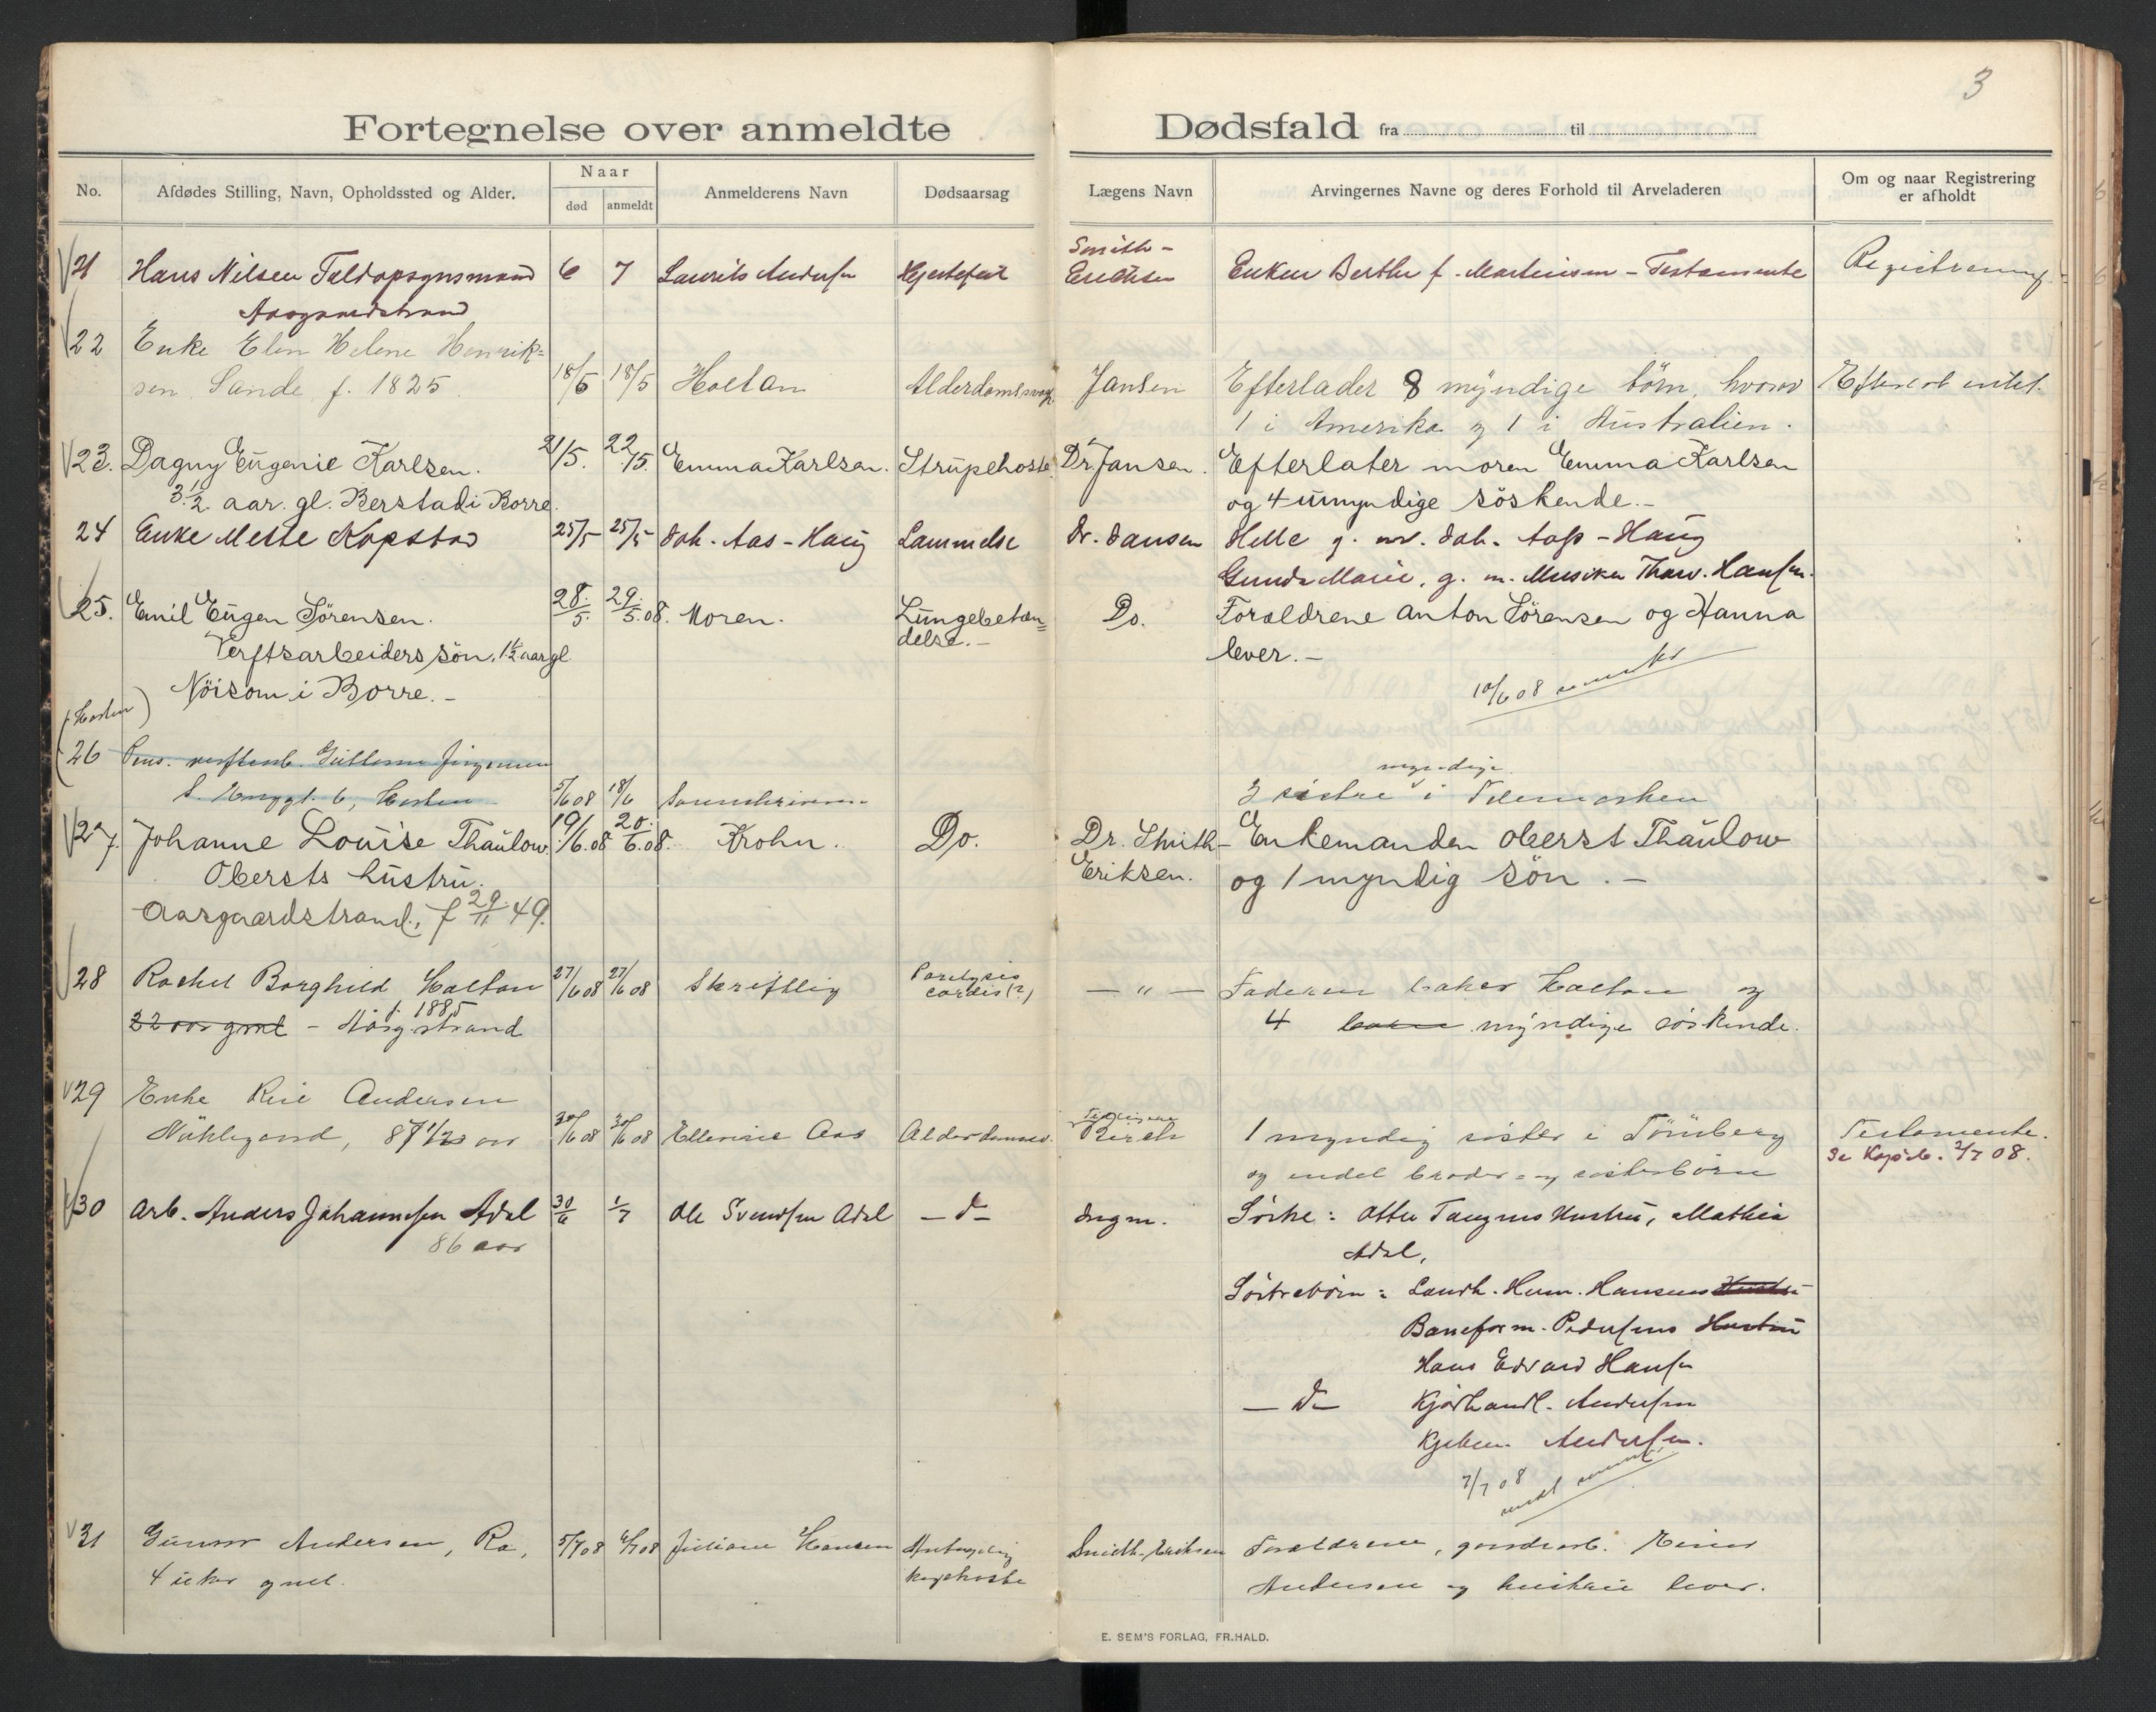 3
Fortegnelse over anmeldte Dødsfald fra til
No. Afdødes Stilling, Navn, Opholdssted og Alder. Naar død anmeldt Anmelderens Navn Dødsaarsag Lægens Navn Arvingernes Navne og deres Forhold til Arveladeren Om og naar Registrering er afholdt
Smith-
21 Hans Nilsen Toldopsynsmand 6 7 Laurits Andersen Hjertefeil Erichsen Enken Berthe f. Martinsen - Testamente Registrering
Aasgaardstrand
22 Enke Elen Helene Henrik=
sen Sande f. 1825. 18/5 18/5 Holtan Alderdomssvagh. Jansen Efterlader 8 myndige börn, hvorav Efterlod intet.
1 i Amerika og 1 i Australien.
23. Dagny Eugenie Karlsen. 21/5. 22/5. Emma Karlsen. Strupehoste. Dr. Jansen. Efterlater moren Emma Karlsen
3 1/2 aar. gl. Berstad i Borre. og 4 umyndige söskende.-
24 Enke Mette Kopstad 25/5 25/5 Joh. Aas-Haug Lammelse Dr. Jansen Helle g. m. Joh. Aass-Haug
Gunda Marie, g. m. Musiker Thorv. Hansen.
25. Emil Eugen Sørensen. 28/5. 29/5.08. Moren. Lungebetæn= Do. Foræld­rene Anton Sörensen og Hanna
Verftsarbeiders sön, 1 1/2 aar gl delse.- lever.-
Nöisom i Borre.- 10/6 08
(Horten)
26 Pens. verftsarb. Guttorm Jörgensen
6, Horten 5/6 08 18/6 myndige
3 söstre i Telemarken
27. Johanne Louise Thaulow. 19/6.08 20/6.08. Krohn. Do. Dr. Smith- Enkemanden Oberst Thaulow
Obersts hustru. Eriksen. og 1 myndig sön.-
Aasgaardstrand, f 29/11 49.
28 Rachel Borghild Holtan 27/6 08 27/6 08 Skriftlig Paralysis cordis (?) — " — Faderen baker Holtan og
f. 1885
22 aar gml - Aasg.strand 4 barn myndige söskende.
29 Enke Andersen
87 1/2 aar 30/6 08 30/6 08 Ellevine Aas Alderdomssv. Birch 1 myndig söster i Tönsberg Testamente.
og endel broder= og sösterbörn Se Kopib. 2/7 08.
30 Arb. Anders Johannesen Adal 30/6 1/7 Ole Svendsen Adal — d — dngm. Söstre: Otter Tangens Hustru, Mathea
86 aar Adal,
Söstrebörn: Landh. Hum. Hansens Hustru
Baneform. Pedersens Hustru
Hans Edvard Hansen
— d — Kjöthandl. Andersen
Andersen.
7/7 08
31 Gunnar Andersen, Ra, 5/7 08 6/7 08 Juliane Hansen Antagelig Smith-Eriksen Forældrene, gaardarb. Einar
4 uker gml. kighoste Andersen og hustru lever.
E. SEM'S FORLAG, FR.HALD.